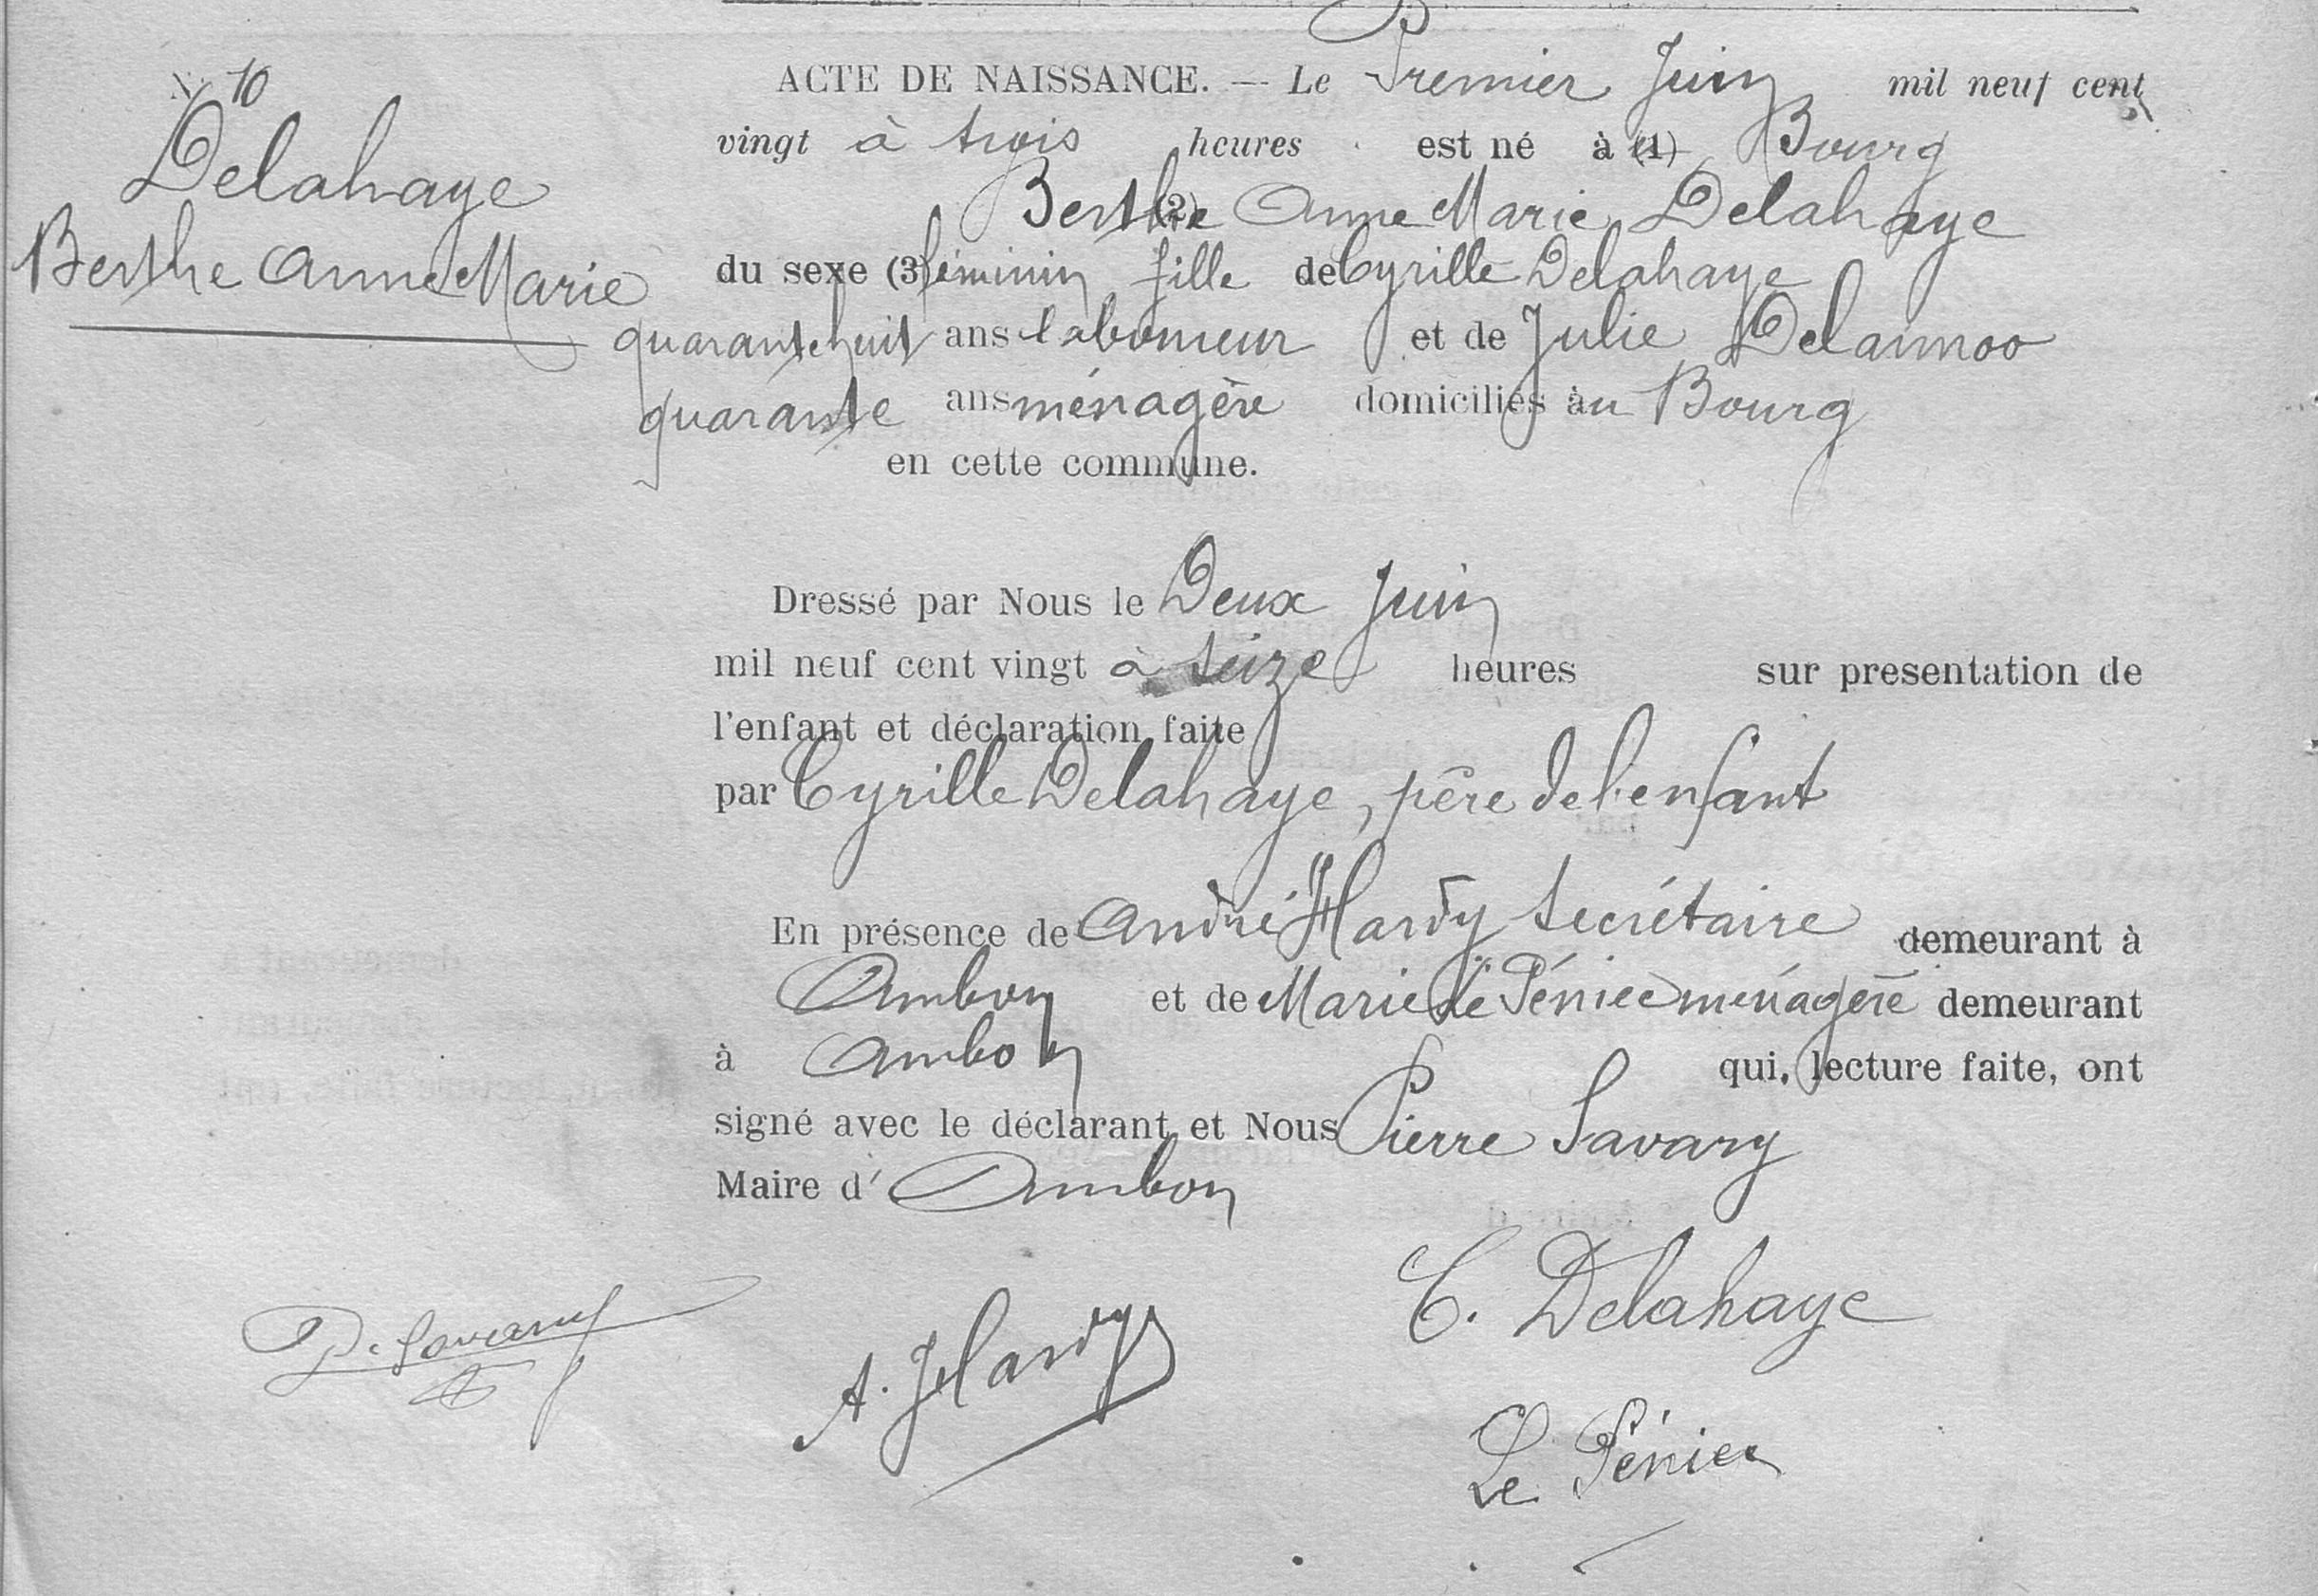 N° 10
Delahaye
Berthe Anne Marie
ACTE DE NAISSANCE. — Le Premier Juin mil neuf cent
vingt à trois heures est né à (1) Bourg
(2) Berthe Anne Marie Delahaye
du sexe (3) féminin fille de Cyrille Delahaye
quarante huit ans laboureur et de Julie Delannoo
quarante ans ménagère domiciliés au Bourg
en cette commune.
Dressé par Nous le Deux Juin
mil neuf cent vingt à seize heures sur presentation de
l'enfant et déclaration faite
par Cyrille Delahaye, père de l'enfant
En présence de André Hardy secrétaire demeurant à
Ambon et de Marie Le Péniec ménagère demeurant
à Ambon qui, lecture faite, ont
signé avec le déclarant et Nous Pierre Savary
Maire d' Ambon
C. Delahaye
P. Savary
A. Hardy
Le Péniec